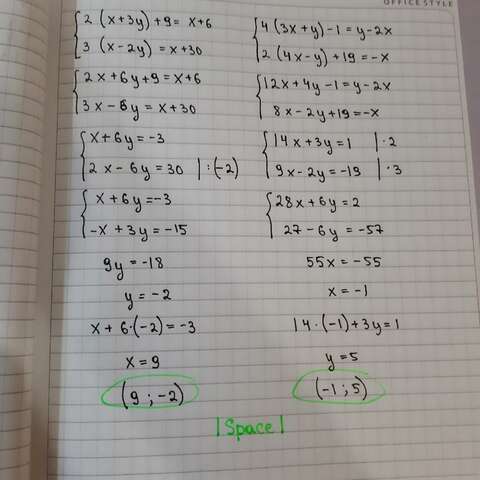 OFFICE STYLE
2 (x+3y)+9= x+6
3 (x-2y) = x+30
2x+6y+9=x+6
3x-6y = x+30
x+6y=-3
2x-6y=30 | :(-2)
x+6y=-3
-x+3y=-15
9y=-18
y=-2
x+6·(-2)=-3
x=9
(9 ; -2)
4(3x+y)-1=y-2x
2(4x-y)+19=-x
12x+4y-1=y-2x
8x-2y+19=-x
14x+3y=1 | ·2
9x-2y=-19 | ·3
28x+6y=2
27-6y=-57
55x=-55
x=-1
14·(-1)+3y=1
y=5
(-1 ; 5)
|Space|